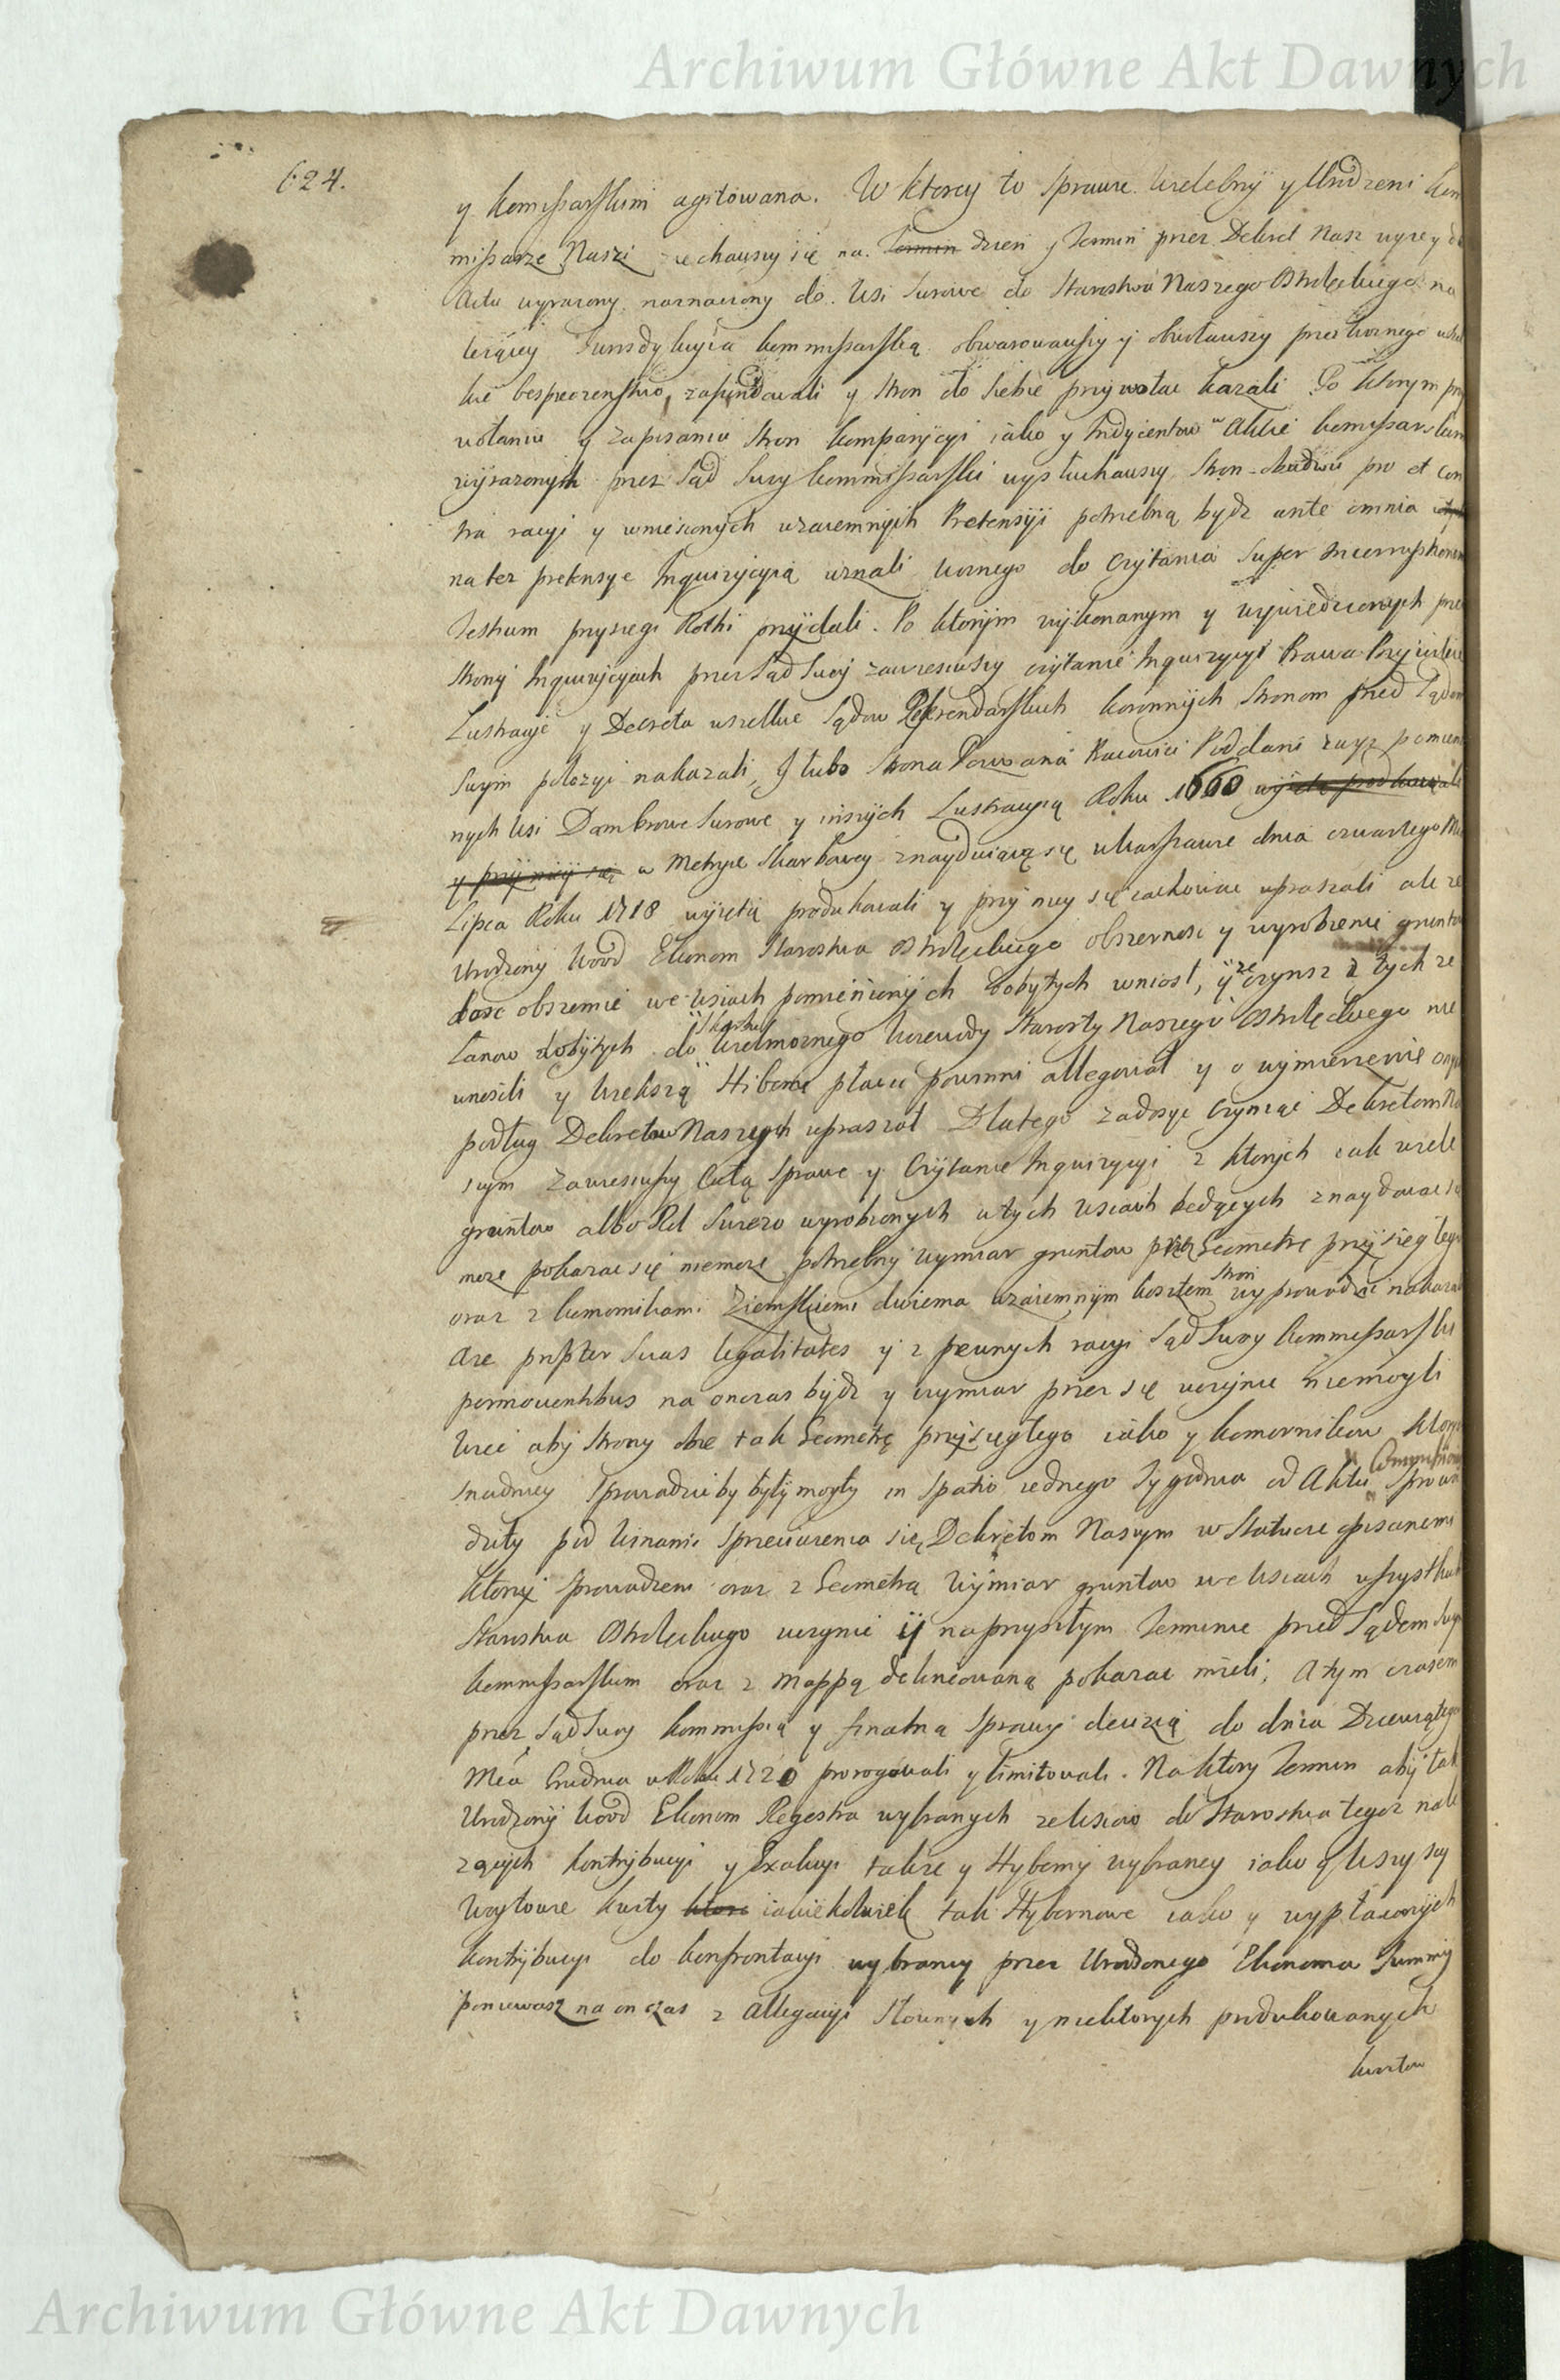 Archiwum Główne Akt Dawnych
624.
y Kommissarskim agitowana. W ktorey to sprawie Wielebny y Urodzeni Kom
missarze Naszi ziechawszy się na Termin dzien y Termin przez Dekret Nasz wyzey do
Actu wyrazony naznaczony do Wsi Surowe do Starostwa Naszego Ostrołęckiego na
lezącey Jurisdykcyia Kommissarską obwarowawszy y obwoławszy przez Woznego
kie bespieczenstwo, zafundowali y Stron do siebie przywołac kazali Po ktorym przy
wołaniu y zapisaniu Stron Komparycyi iako y Indycientow w Akcie Kommissarskim
wyrazonych przez Sąd Swoy Kommissarski wysłuchawszy Stron obudwu pro et con
tra racyi y wniesionych wzaiemnych Pretensyi potrzebną bydz ante omnia
na tez pretensye Inquizycyią uznali Woznego do czytania super
Testium przysiegi Rothi przydali. Po ktorym wykonanym y wywiedzionych przez
Strony Inquizycyach przez Sąd Swoy zawiesiwszy czytanie Inquizycyi Prawa Przywileie
Lustracye y Decreta wszelkie Sądow Referendarskich Koronnych Stronom przed Sądem
Swym położyc nakazali, J lubo Strona Pozwana Pracowici Poddani rzeczpomienio
nych Wsi Dombrowe Surowe y inszych Lustracyią Roku 1660 wyięte produkowali
y przy niey się w Metryce Skarbowey znayduiącą się w Warszawie dnia czwartego Msca
Lipca Roku 1718 wyiętą produkowali y przy niey się zachowac upraszali ale ze
Urodzony Wood Ekonom Starostwa Ostrołęckiego obszernosc y wyrobienie gruntow
dosc obszernie we Wsiach pomienionych dobytych wniosł, y ze czynsz z tych ze
Łanow dobytych do Skarbu Wielmoznego Woiewody Starosty Naszego Ostrołęckiego nie
wnosili y większą Hiberne płacic powinni allegował y o wymierzenie onych
podług Dekretow Naszych upraszał Dlatego zadosyc czyniąc Dekretom Na
szym zawiesiwszy całą Sprawe y Czytanie Inquizycyi z ktorych iak wiele
gruntow albo Rol Surowo wyrobionych w tych Wsiach będących znaydowac się
moze pokazac się niemoze potrzebny wymiar gruntow przez Geometre przysiegłego
oraz z komornikami Ziemskiemi dwiema wzaiemnym kosztem Stron wyprowadzic nakazali
Aze propter suas legalitates y z pewnych racyi Sąd Swoy Kommissarski
permoventibus na onczas bydz y wymiar przez się uczynic niemogli
Wiec aby Strony obie tak Geometrę przysiegłego iako y Komornikow ktorzy
snadniey sprowadzic by byli mogły in spatio iednego Tygodnia od Aktu Commissionis sprowa
dziły pod Winami Sprzeciwienia się Dekretom Naszym w Statucie opisanemi
Ktorzy sprowadzeni oraz z Geometrą Wymiar gruntow we Wsiach wszystkich
Starostwa Ostrołęckiego uczynic y na przyszłym Terminie przed Sądem Swym
Kommissarskim oraz z Mappą delineowaną pokazac mieli, A tym czasem
przez Sąd Swoy Kommissią y finalną Sprawy decizią do dnia Dziewiątego
Mca Grudnia w Roku 1720 prorogowali y limitowali. Na ktory Termin aby tak
Urodzony Wood Ekonom Regestra wybranych ze Wsiow do Starostwa tegoz nale
zących kontrybucyi y Exakcyi takze y Hyberny wybraney iako y Wszyscy
Woytowie kwity ktore iakiekolwiek tak Hybernowe iako y wypłaconych
kontrybucyi do konfrontacyi wybraney przez Urodzonego Ekonoma Summy
poniewasz na onczas z allegacyi Słownych y niektorych produkowanych
kwitow
Archiwum Główne Akt Dawnych